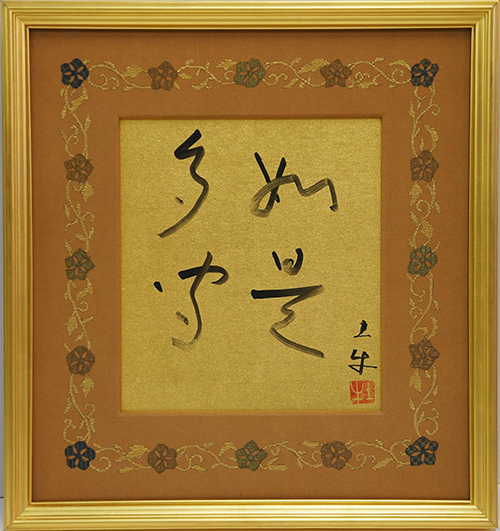 如是
我聞
土牛